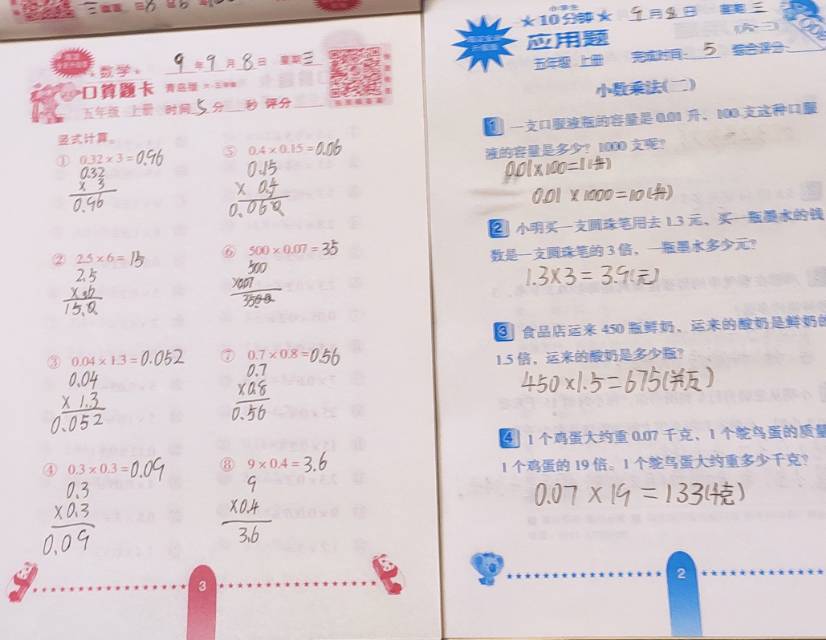 数学
口算题卡 青岛版 五年级
9年9月8日 星期三
五年级 上册 时间 5分 秒 评分
竖式计算。
① 0.32×3=0.96
0.32
×3
0.96
② 2.5×6=15
2.5
×6
15.0
③ 0.04×1.3=0.052
0.04
×1.3
0.052
④ 0.3×0.3=0.09
0.3
×0.3
0.09
⑤ 0.4×0.15=0.06
0.15
×0.4
0.060
⑥ 500×0.07=35
500
×0.07
3500
⑦ 0.7×0.8=0.56
0.7
×0.8
0.56
⑧ 9×0.4=3.6
9
×0.4
3.6
3
小学生
★10分钟★ 9月8日 星期三
应用题
五年级 上册 完成时间: 5 综合评分:
小数乘法(二)
1 一支口服液瓶的容量是0.01升、100支这种口服
液的容量是多少? 1000支呢?
0.01×100=1(升)
0.01×1000=10(升)
2 小明买一支圆珠笔用去1.3元、买一瓶墨水的钱
数是一支圆珠笔的3倍，一瓶墨水多少元?
1.3×3=3.9(元)
3 食品店运来450瓶鲜奶、运来的酸奶是鲜奶的
1.5倍，运来的酸奶是多少瓶?
450×1.5=675(瓶)
4 1个鸡蛋大约重0.07千克、1个鸵鸟蛋的质量
1个鸡蛋的19倍。1个鸵鸟蛋大约重多少千克?
0.07×19=133(千克)
2